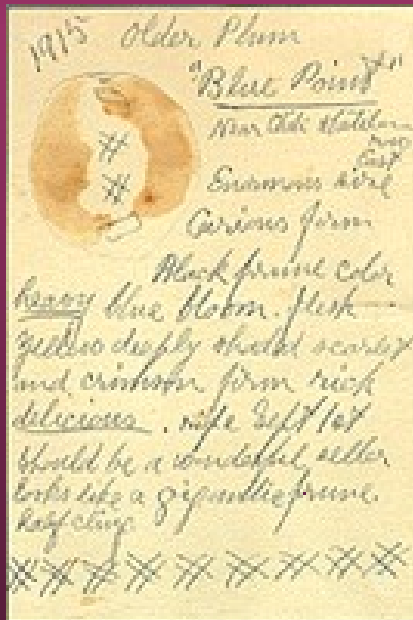 1915 Older Plum
"Blue Point"
Near Old
row
East
Enormous size
Curious form
Black prune color
heavy blue bloom. flesh
yellow deeply shaded scarlet
and crimson firm rich
delicious. ripe Sept 1st
Should be a wonderful seller
looks like a gigantic prune.
half cling